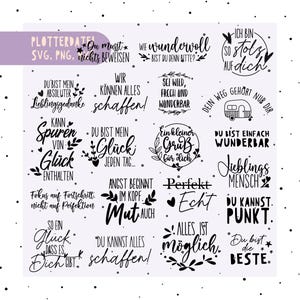 PLOTTERDATEI
SVG, PNG,
Du musst
nichts BEWEISEN
WIE wundervoll
BIST DU DENN BITTE?
ICH BIN
SO stolz
auf DICH
DU BIST MEIN
ABSOLUTER
Lieblingsgedanke
WIR
KÖNNEN ALLES
schaffen!
SEI WILD,
FRECH UND
WUNDERBAR
DEIN WEG GEHÖRT NUR DIR
KANN
Spuren
VON
Glück
ENTHALTEN
DU BIST MEIN
Glück
JEDEN TAG...
Ein kleiner
Gruß
für dich
DU BIST EINFACH
WUNDERBAR
Lieblings
MENSCH
Fokus auf Fortschritt,
nicht auf Perfektion
ANGST BEGINNT
IM KOPF.
Mut AUCH
Perfekt
Echt
DU KANNST.
PUNKT.
SO EIN
Glück
DASS ES
Dich GIBT
DU KANNST ALLES
schaffen!
ALLES IST
möglich,
Du bist die
BESTE.